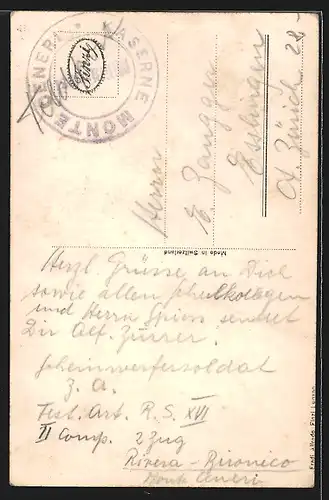 KASERNE MONTE CENERI
Herrn
E. Zangger
Esslingen
Kt. Zürich 28
Made in Switzerland
Herzl. Grüsse an Dich
sowie allen Schulkollegen
und Herrn Spiess sendet
Dir Alf. Zürrer.
Scheinwerfersoldat
Z. A.
Fest. Art. R. S. XVI
II Comp. 2 Zug
Rivera-Bironico
Monte Ceneri